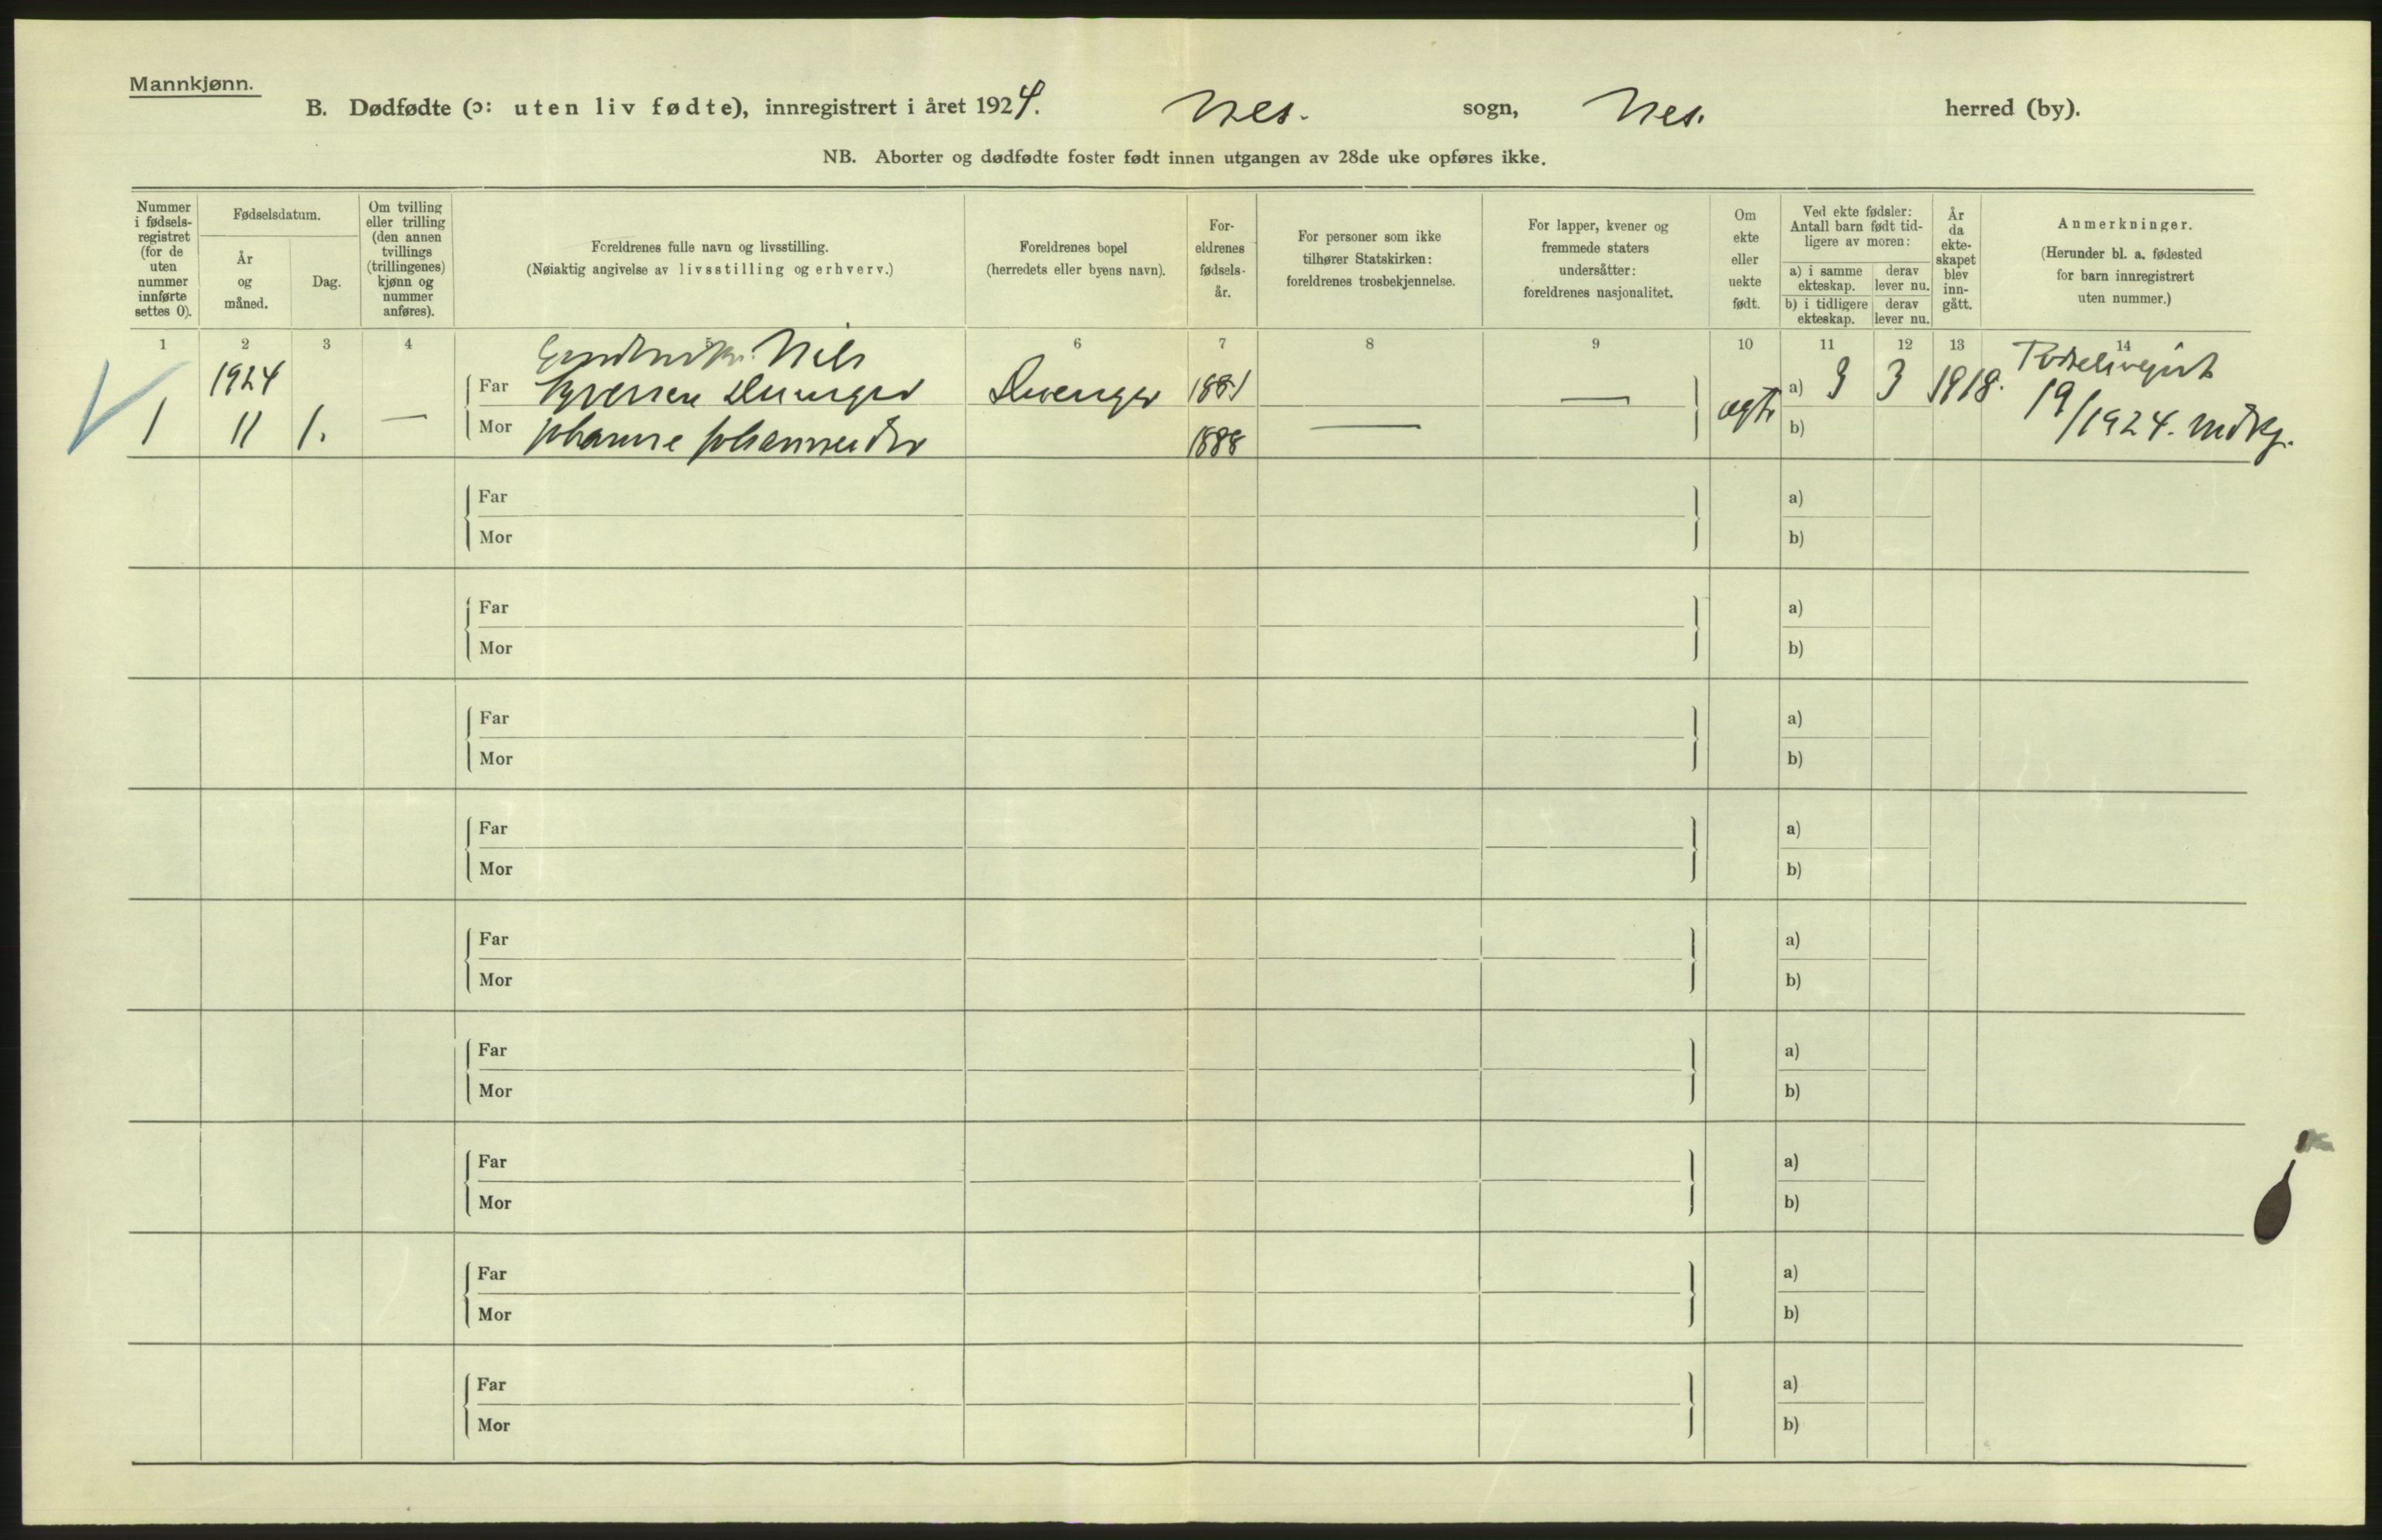 Mannkjønn.
B. Dødfødte (ɔ: uten liv fødte), innregistrert i året 1924. Nes. sogn, Nes. herred (by).
NB. Aborter og dødfødte foster født innen utgangen av 28de uke opføres ikke.
Nummer
i fødsels-
registret
(for de
uten
nummer
innførte
settes 0).
Fødselsdatum.
År
og
måned.
Dag.
Om tvilling
eller trilling
(den annen
tvillings
(trillingenes)
kjønn og
nummer
anføres).
Foreldrenes fulle navn og livsstilling.
(Nøiaktig angivelse av livsstilling og erhverv.)
Foreldrenes bopel
(herredets eller byens navn).
For-
eldrenes
fødsels-
år.
For personer som ikke
tilhører Statskirken:
foreldrenes trosbekjennelse.
For lapper, kvener og
fremmede staters
undersåtter:
foreldrenes nasjonalitet.
Om
ekte
eller
uekte
født.
Ved ekte fødsler:
Antall barn født tid-
ligere av moren:
a) i samme
ekteskap.
derav
lever nu.
b) i tidligere
ekteskap.
derav
lever nu.
År
da
ekte-
skapet
blev
inn-
gått.
Anmerkninger.
(Herunder bl. a. fødested
for barn innregistrert
uten nummer.)
1 2 3 4 5 6 7 8 9 10 11 12 13 14
Nils
1924
Far 1881 — a) 3 3 1918.
1 11 1. — Mor Johanne 1888 — b) 19/1924.
Far a)
Mor b)
Far a)
Mor b)
Far a)
Mor b)
Far a)
Mor b)
Far a)
Mor b)
Far a)
Mor b)
Far a)
Mor b)
Far a)
Mor b)
Far a)
Mor b)